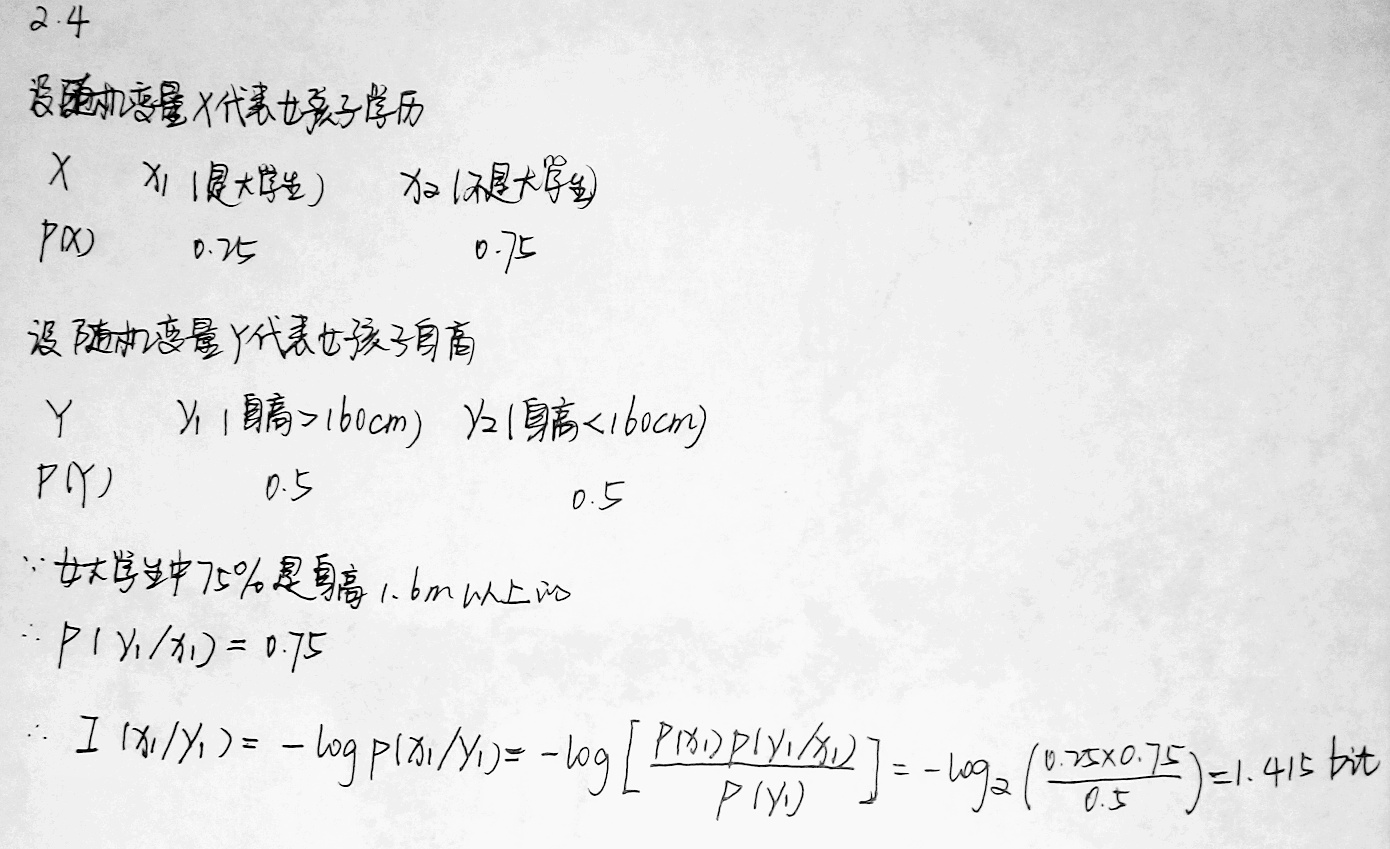 2.4
设随机变量X代表女孩子学历
X x₁(是大学生) x₂(不是大学生)
P(X) 0.25 0.75
设随机变量Y代表女孩子身高
Y y₁(身高>160cm) y₂(身高<160cm)
P(Y) 0.5 0.5
∵女大学生中75%是身高1.6m以上的
∴P(y₁/x₁)=0.75
∴ I(x₁/y₁)=-log p(x₁/y₁)=-log[P(x₁)p(y₁/x₁)/P(y₁)]=-log₂(0.25×0.75/0.5)=1.415 bit